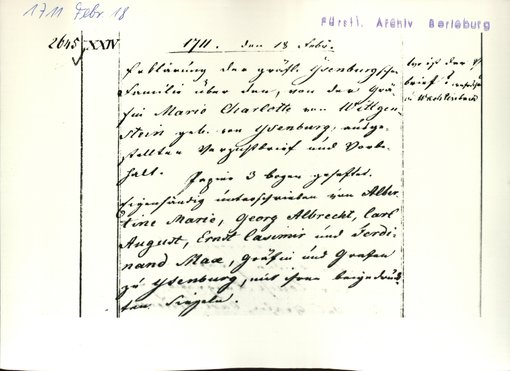 1711 Febr 18
Fürstl. Archiv Berleburg
2645 LXXIV
1711. den 18 Febr.
Erklärung der gräfl. Ysenburgschen
Familie über den, von der Grä-
fin Marie Charlotte von Wittgen-
stein geb. von Ysenburg, ausge-
stellten Verzichtbrief und Vorbe-
halt.
Papier 3 bogen geheftet.
Eigenhändig unterschrieben von Alber-
tine Marie, Georg Albrecht, Carl
August, Ernst Casimir und Ferdi-
nand Max, Gräfin und Grafen
zu Ysenburg, mit ihren beigedruck-
ten Siegeln.
ist der
brief
in Wächtersbach